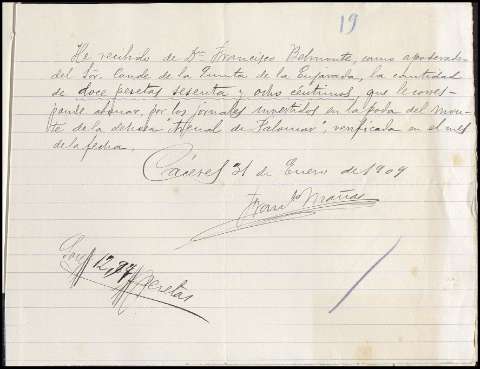 19
He recibido de Dn. Francisco Belmonte, como apoderado
del Sr. Conde de la Quinta de la Enjarada, la cantidad
de doce pesetas sesenta y ocho céntimos, que le corres-
ponde abonar, por los jornales invertidos en la poda del mon-
te de la dehesa "Arenal de Palomar", verificada en el mes
de la fecha.
Cáceres 31 de Enero de 1909
Franco Mañas
Son 12,97 pesetas